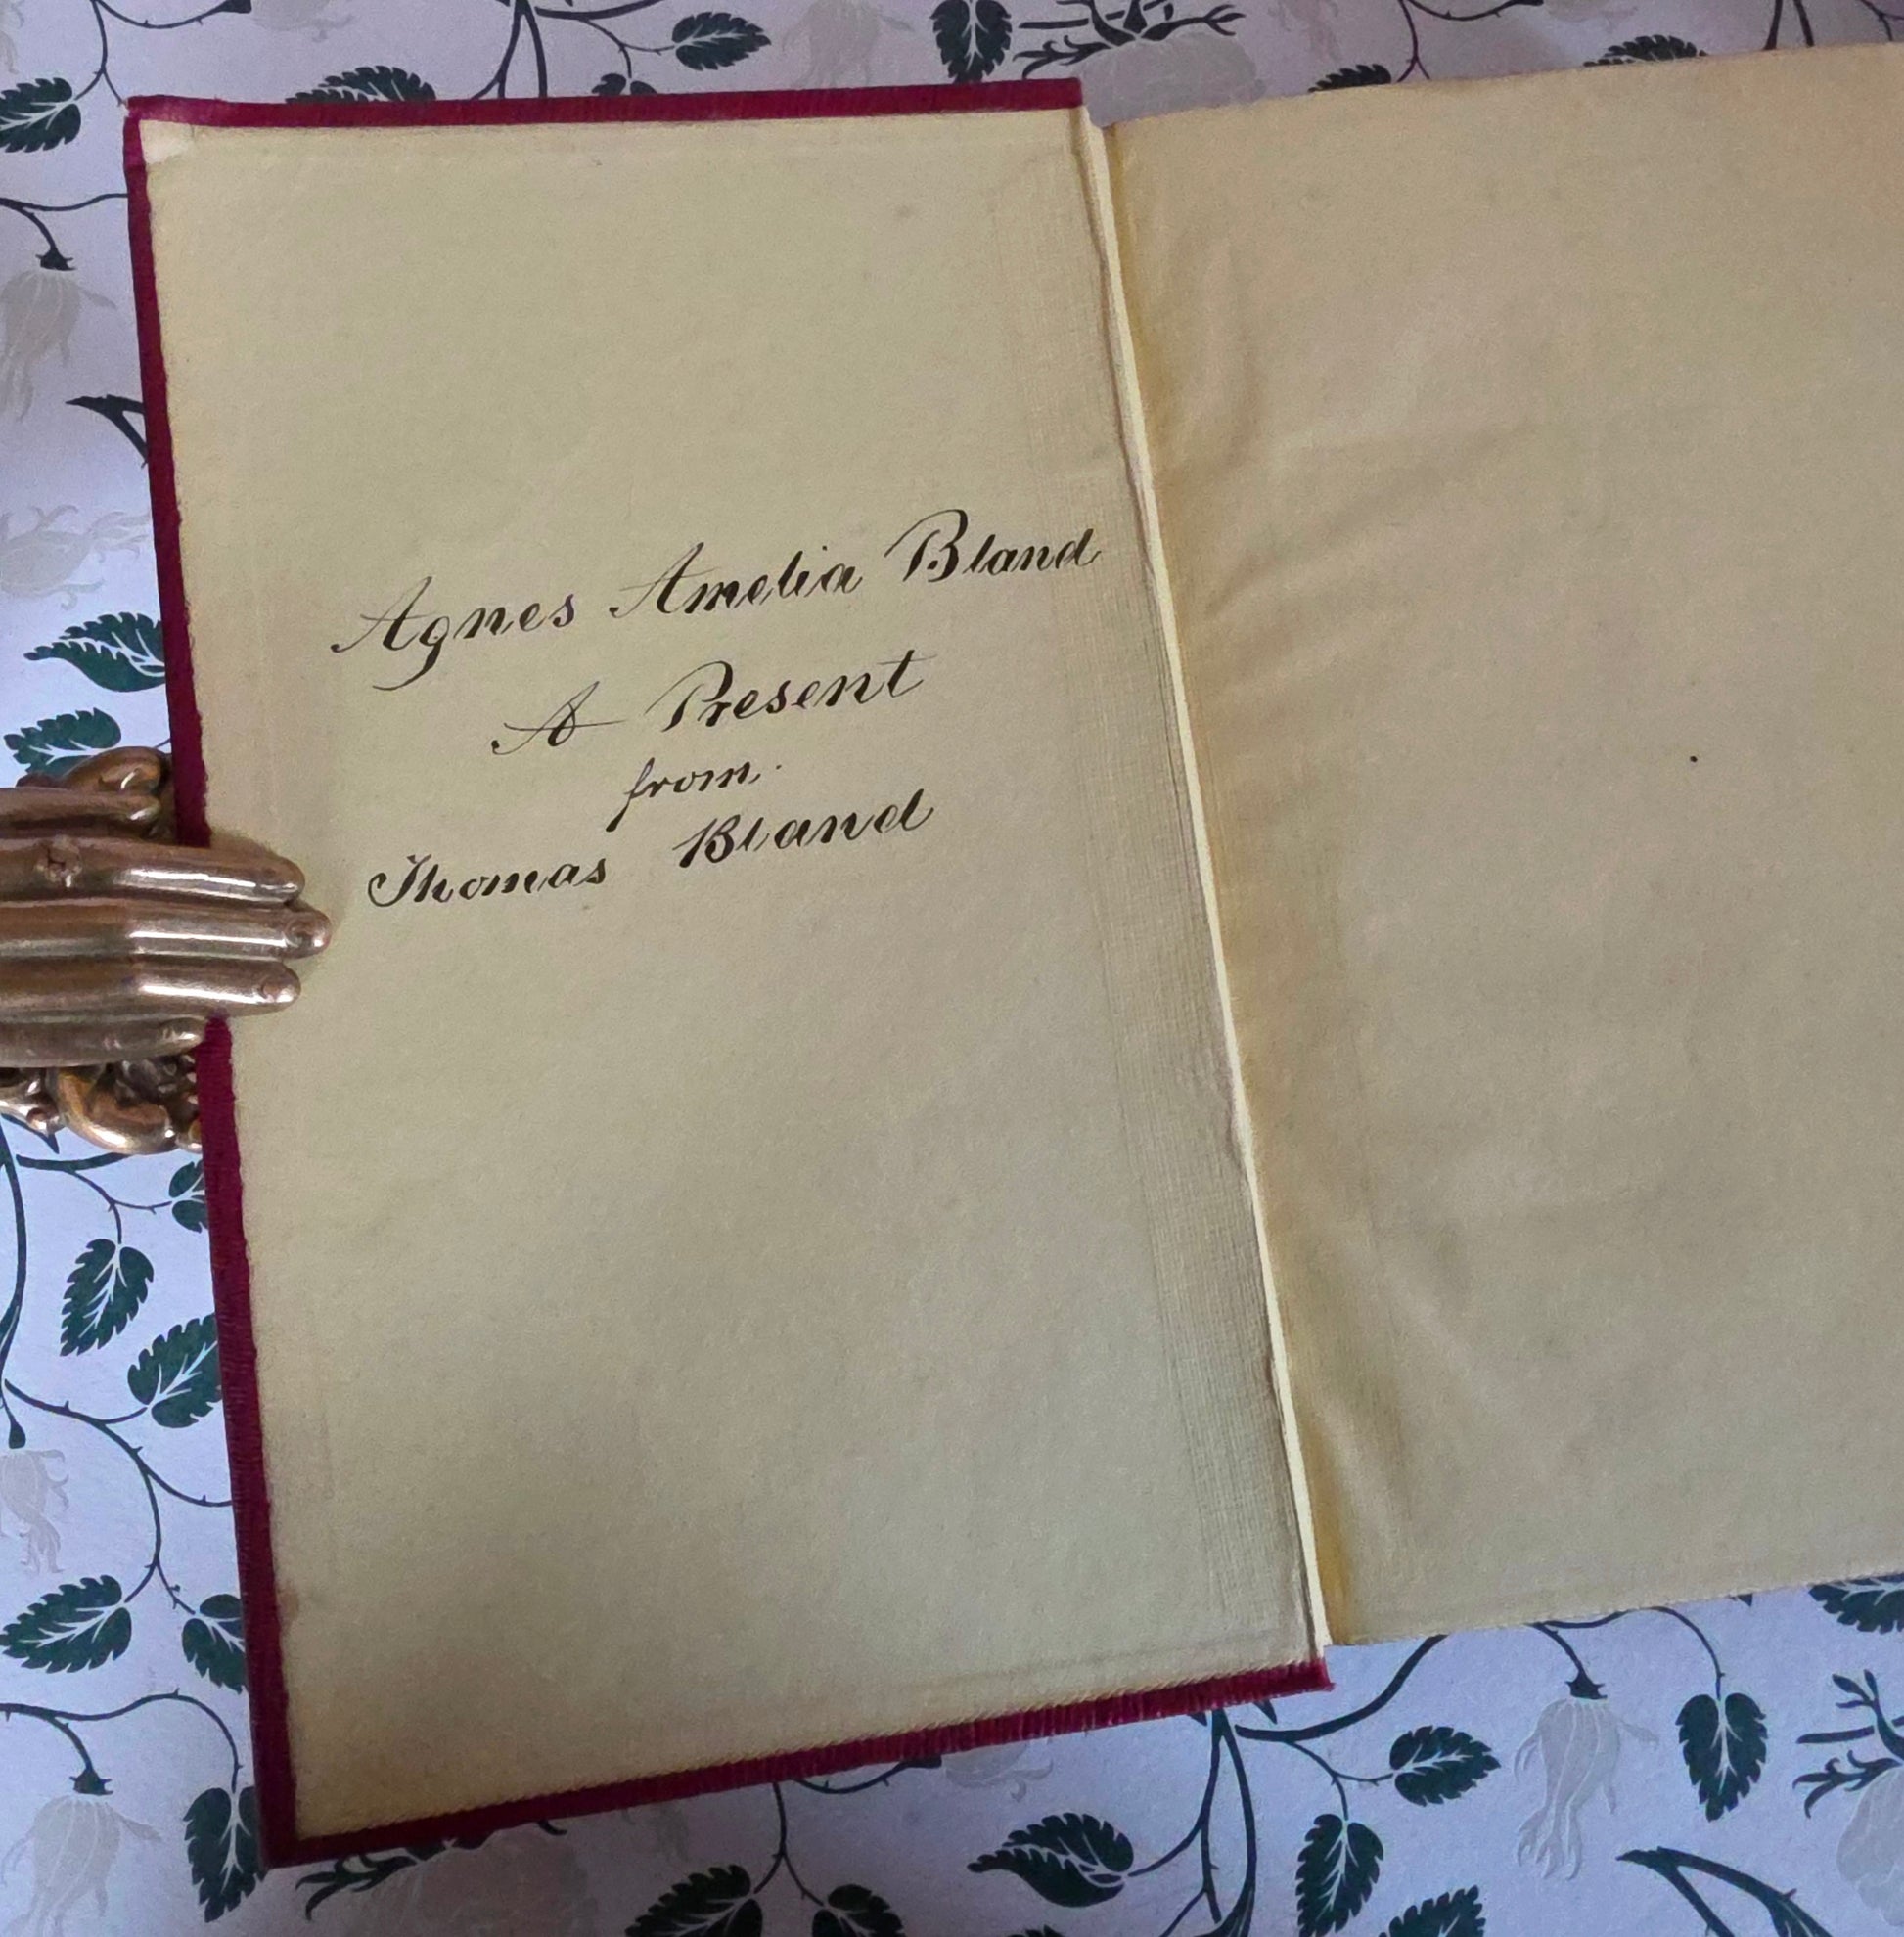 Agnes Amelia Bland
A Present
from.
Thomas Bland